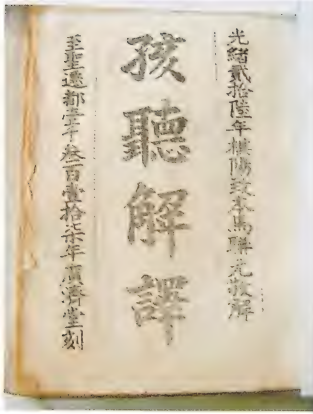 光緒貳拾陸年楪陽致本馬聯元敬解
孩聽解譯
至聖遷都壹千叁百壹拾柒年廣濟堂刻